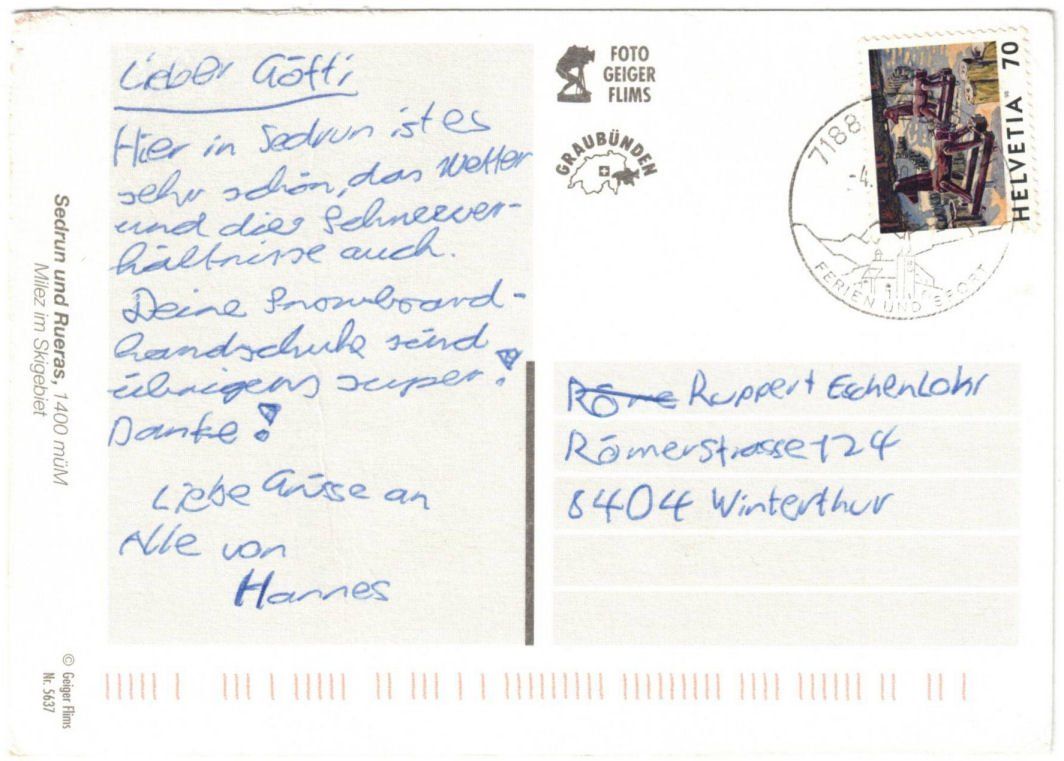 Lieber Götti
Hier in Sedrun ist es
sehr schön, das Wetter
und die Schneever-
hältnisse auch.
Deine Snowboard-
handschuhe sind
übrigens super!
Danke!
Liebe Grüsse an
Alle von
Hannes
FOTO
GEIGER
FLIMS
GRAUBÜNDEN
HELVETIA 70
7188
-4.
FERIEN UND SPORT
Röme Ruppert Eschenlohr
Römerstrasse 124
8404 Winterthur
Sedrun und Rueras, 1400 müM
Milez im Skigebiet
© Geiger Flims
Nr. 5637